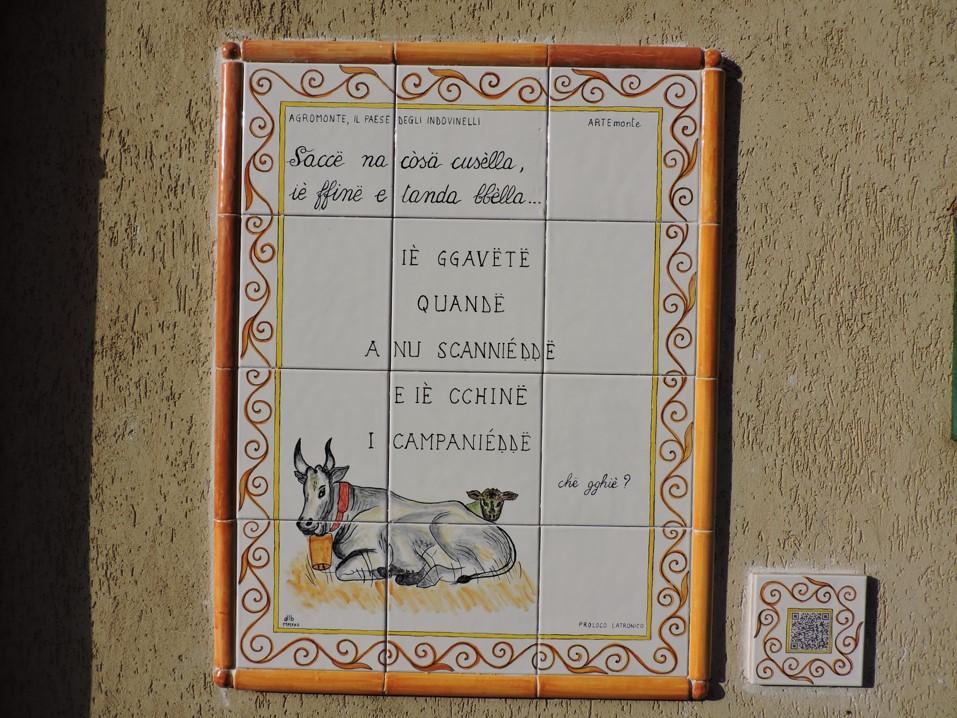 AGROMONTE, IL PAESE DEGLI INDOVINELLI
ARTEmonte
Saccë na còsä cusèlla,
iè ffinë e tanda bbèlla...
IÈ GGAVËTË
QUANDË
A NU SCANNIÉḌḌË
E IÈ CCHINË
I CAMPANIÉḌḌË
chë gghiè?
dlb
PROLOCO LATRONICO